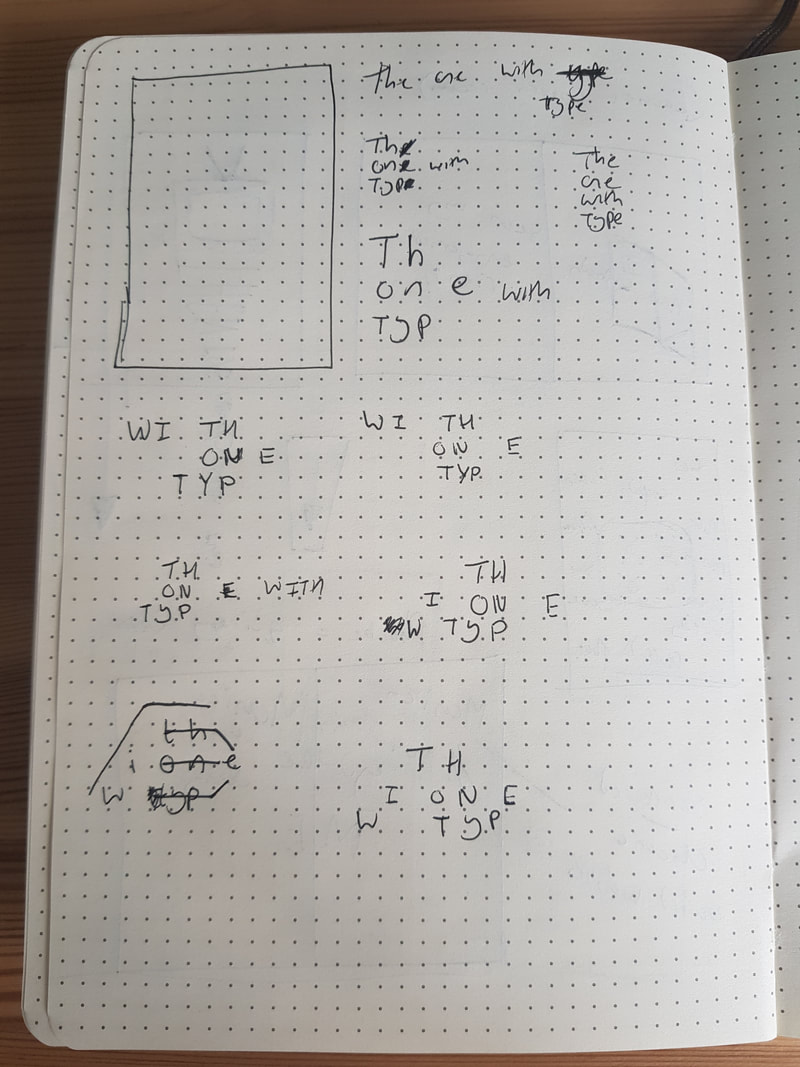 The one with
type
The
one with
Type
The
one
with
Type
Th
on e with
TYP
WI TH
ON E
TYP
WI TH
ON E
TYP
TH
ON E WITH
TYP
TH
I ON E
W TYP
th
i on e
W typ
TH
I ON E
W TYP